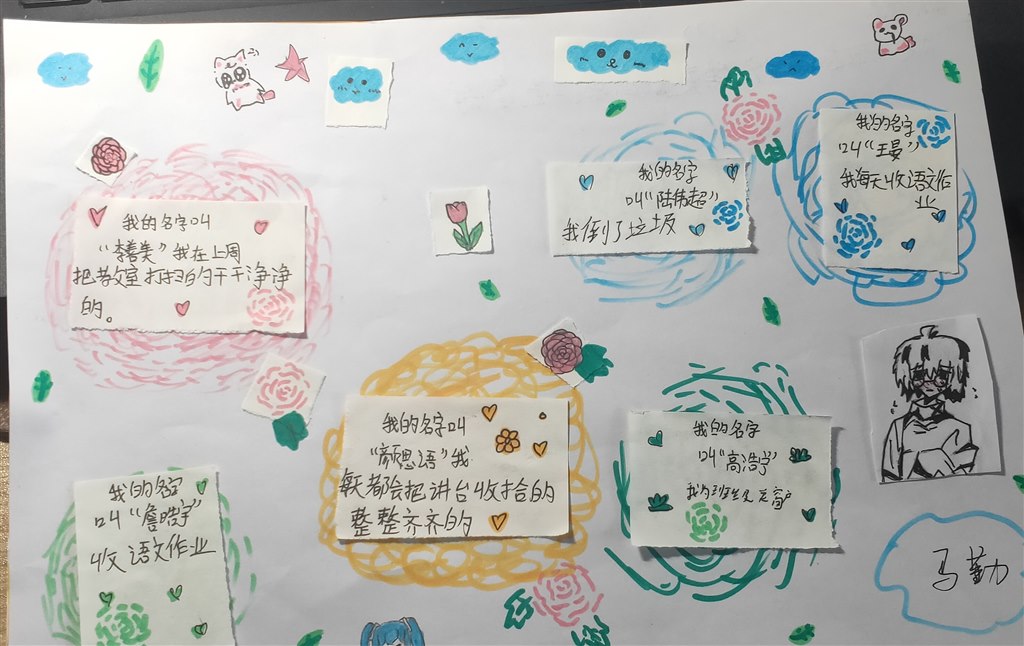 我的名字叫
“李善美”我在上周
把教室打扫的干干净净
的。
我的名字
叫“陆伟超”
我倒了垃圾
我的名字
叫“王晏”
我每天收语文作
业
我的名字叫
“颜思语”我
每天都会把讲台收拾的
整整齐齐的
我的名字
叫“高浩宇”
我为班级
窗户
我的名字
叫“詹皓宇”
收语文作业
马勤